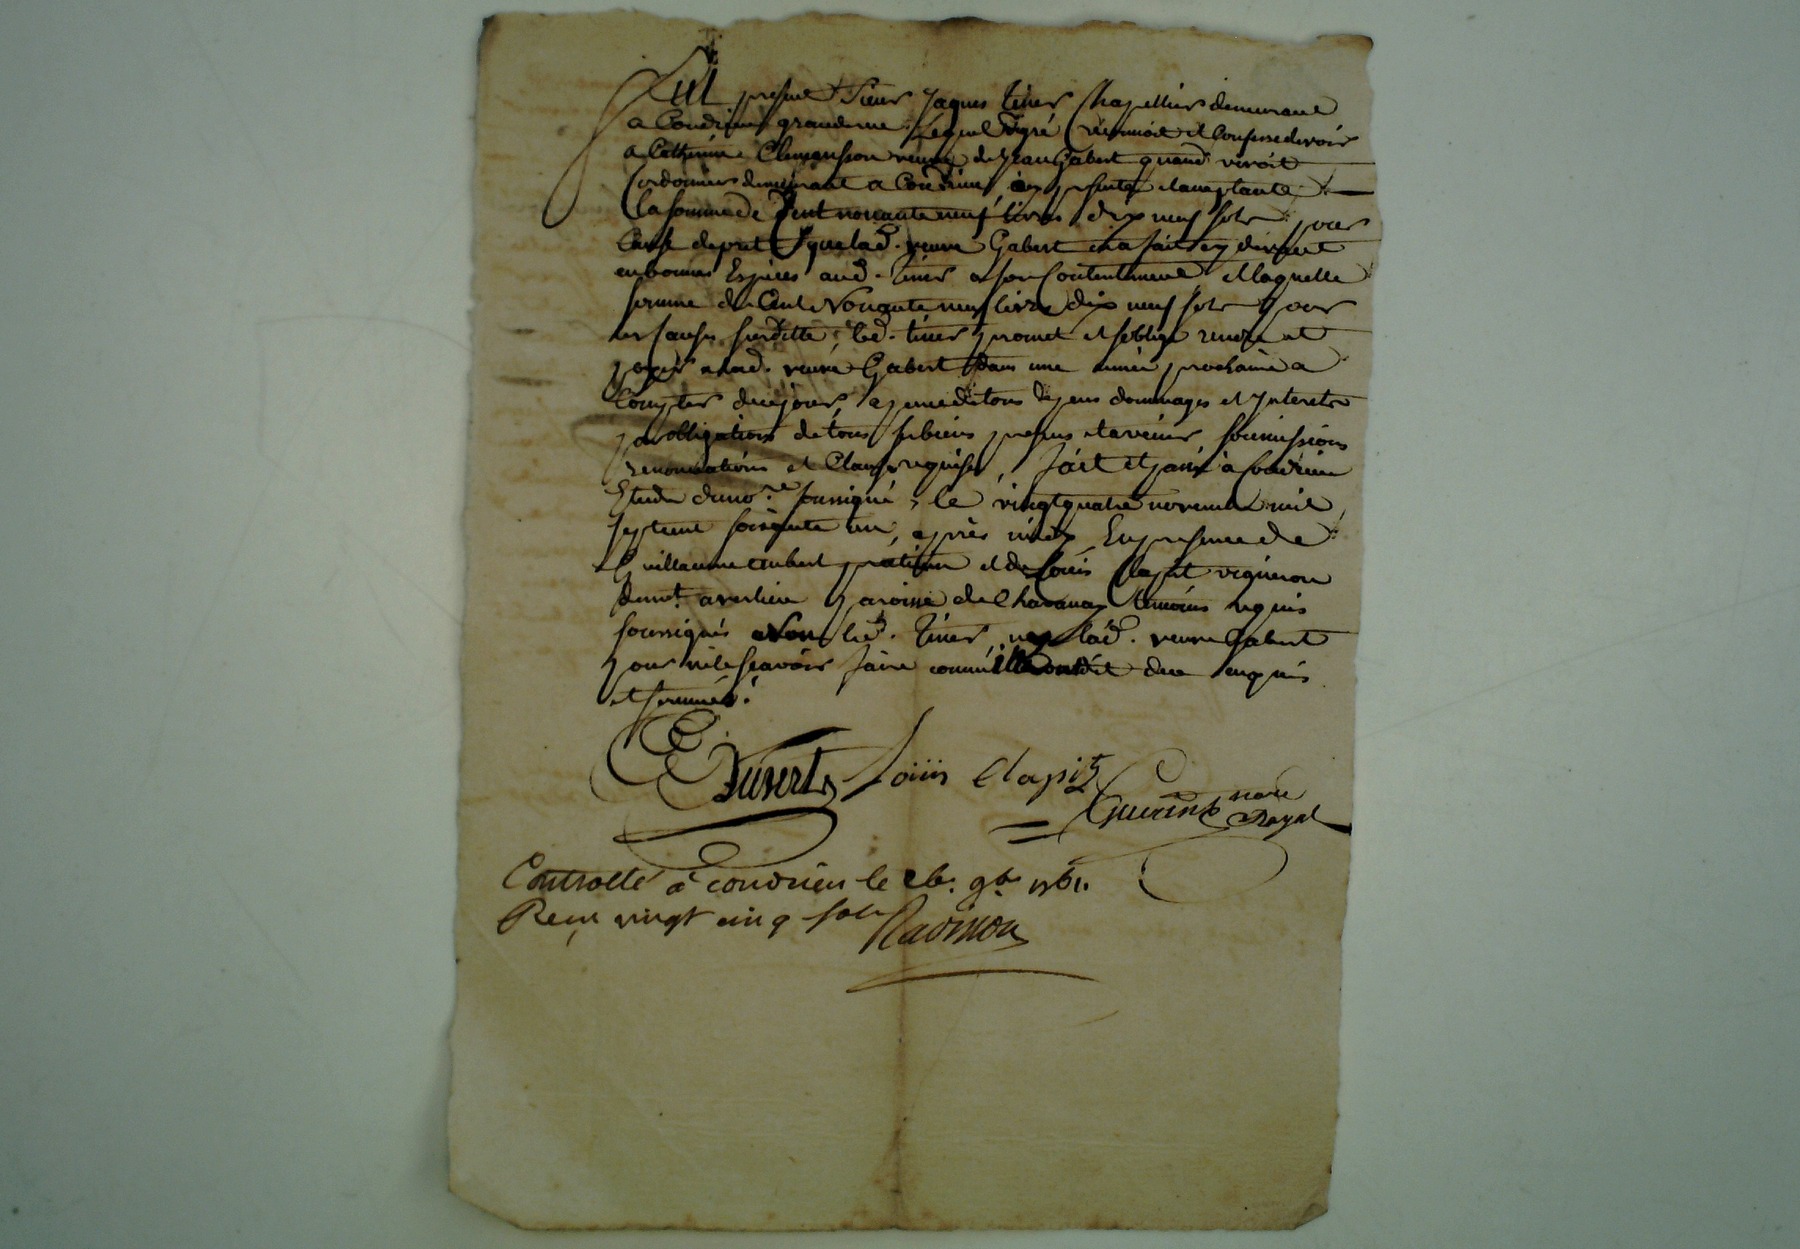 Fut present Sieur Jaques tiner Chapellier demeurant
a Condrieu grande rue, Lequel de gré reconnoit et Confesse devoir
a Catherine Clemansson veuve de Jean Gabert quand vivoit
Cordonnier demeurant a Condrieu, icy presente et acceptante
la somme de Cent nonante neuf livres dix neuf sols pour
Cause de pret que lad. veuve Gabert en a fait cy devant
en bonnes Espèces aud. tiner a son Contentement, et laquelle
somme de Cent Nonante neuf livres dix neuf sols pour
les causes susditte, led. tiner promet et s'oblige rendre et
payer a lad. veuve Gabert dans une année prochaine a
Compter de ce jour, a peine de tous depens dommages et Interets
par obligations de tous ses biens presens et a venir soumissions
renonciations et Clauses requises, fait et passé à Condrieu
Etude du no.re soussigné, le vingt quatre novembre mil
sept cent soixante un, après midy En presence de
Guillaume Aubert praticien et de Louis Clapit vigneron
demt. a verlieu paroisse de Chavanay temoins requis
soussignés led. tiner, ny lad. veuve Gabert
pour ne le sçavoir faire comme ils ont dit de ce enquis
et sommés.
Aubert Louis Clapit
Guerin nore
Royal
Controllé à condrieu le 26. 9b. 1761.
Reçu vingt cinq sols